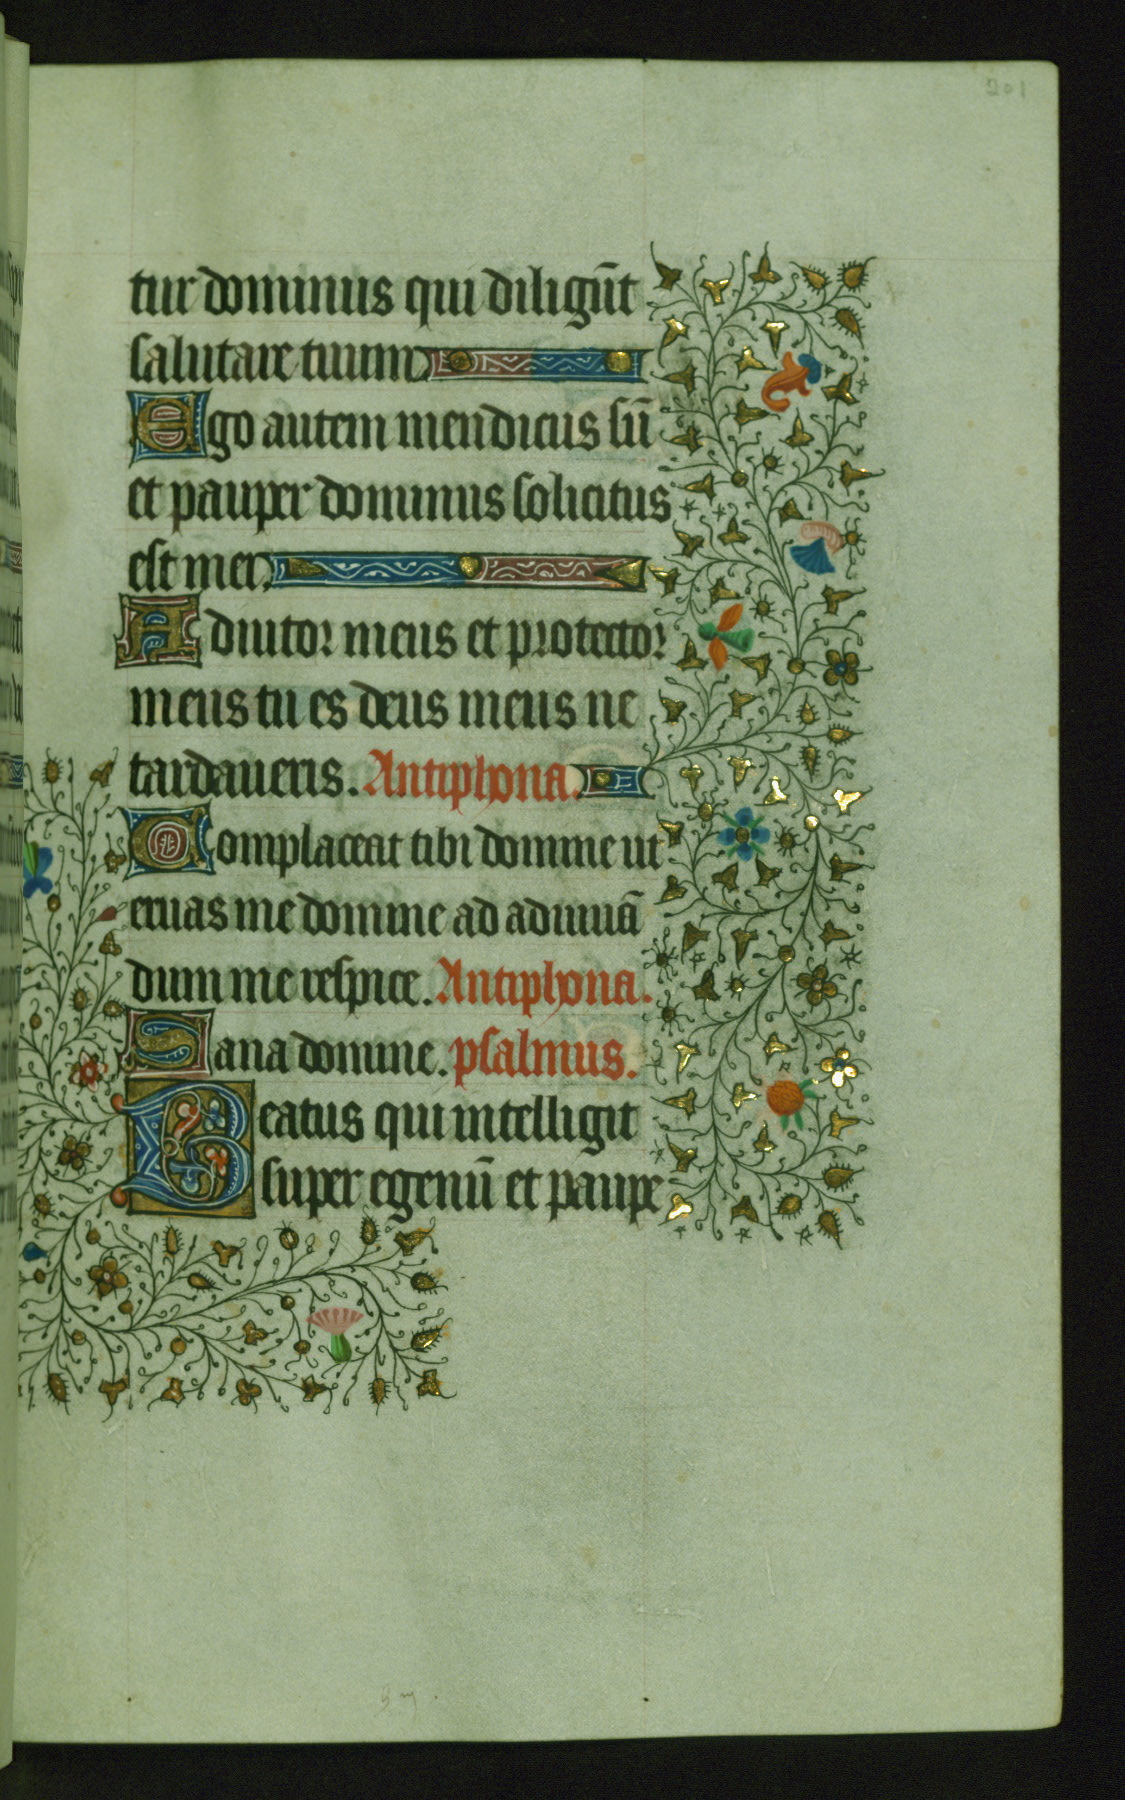 201
tur dominus qui diligūt
salutare tuum
Ego autem mendicus sū
et pauper dominus solicitus
est mei
Adiutor meus et protector
meus tu es deus meus ne
tardaueris. Antiphona.
Complaceat tibi domine ut
eruas me domine ad adiuuā
dum me respice. Antiphona.
Sana domine. psalmus.
Beatus qui intelligit
super egenū et paupe